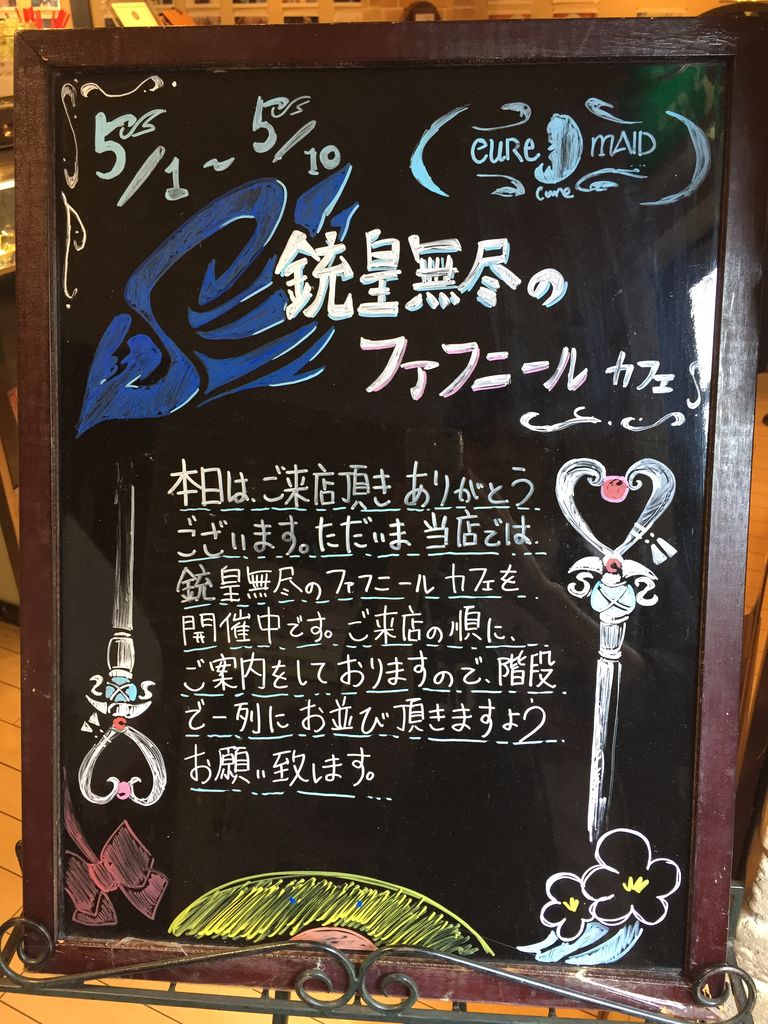 5/1 ~ 5/10
CURE MAID
Cafe
銃皇無尽の
ファフニール カフェ
本日は、ご来店頂き ありがとう
ございます。ただいま 当店では
銃皇無尽のファフニール カフェを
開催中です。ご来店の順に、
ご案内をして おりますので、階段
で一列に お並び 頂きますよう
お願い致します。